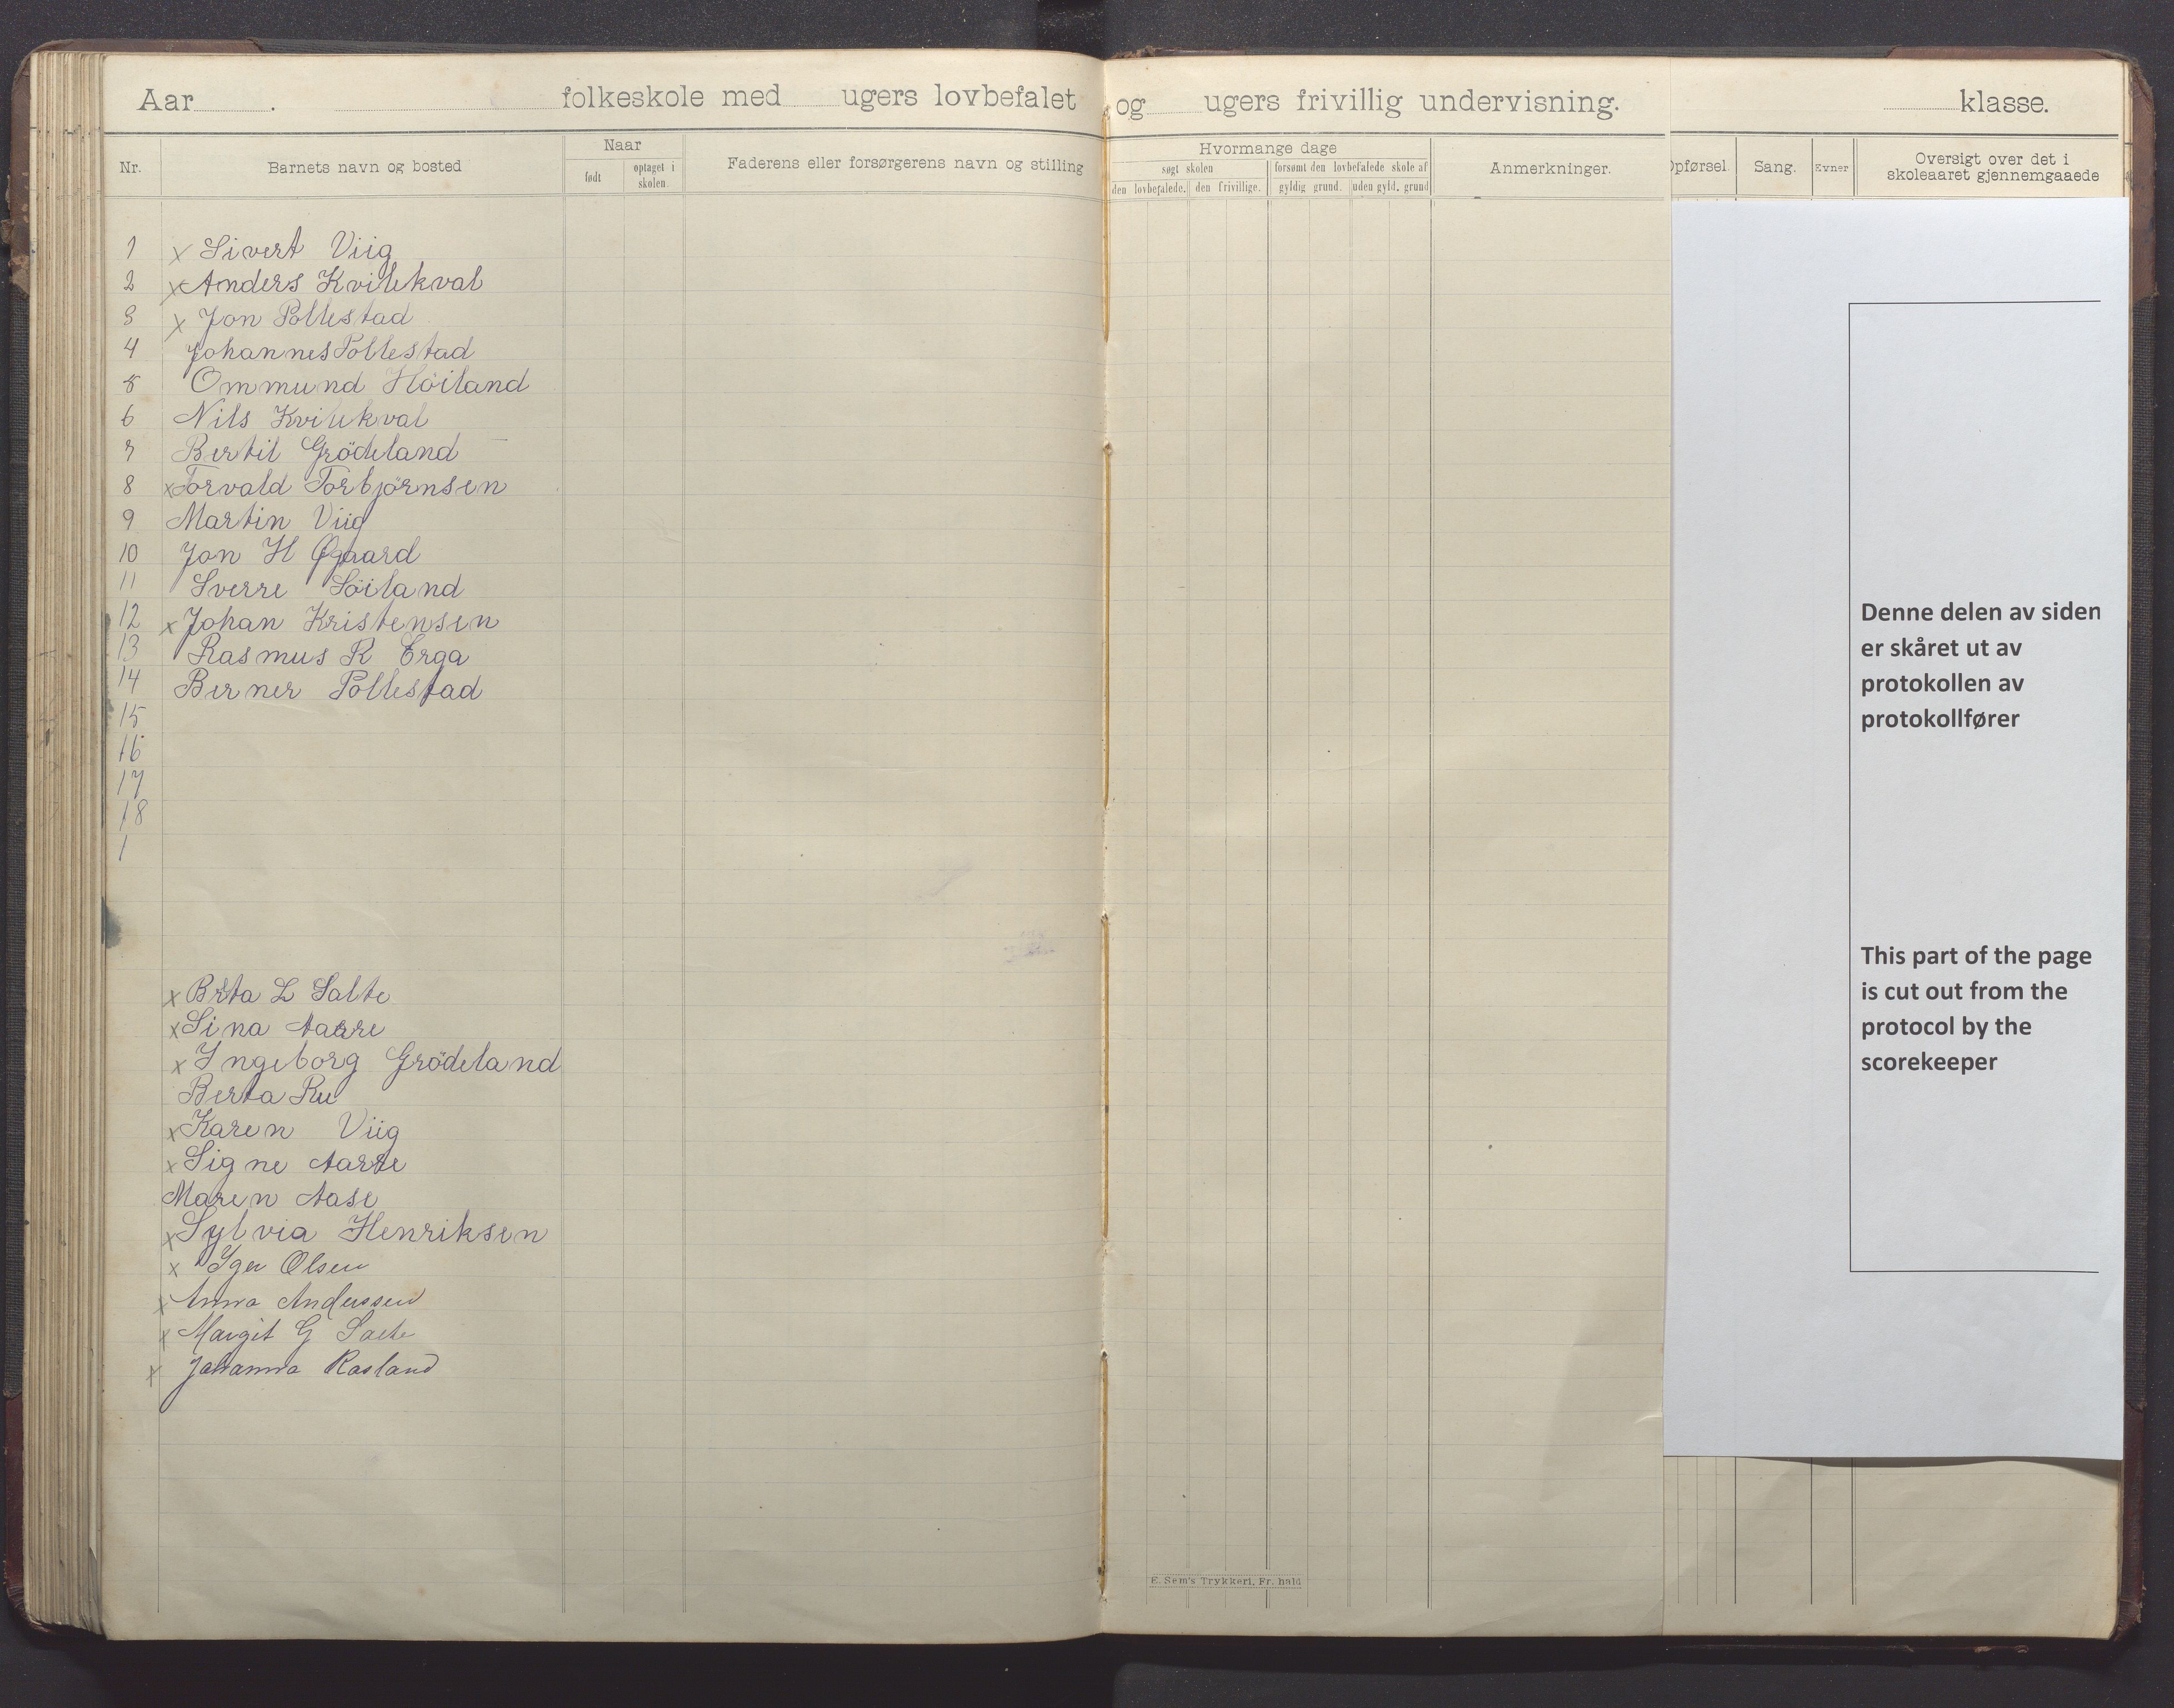 Aar . folkeskole med ugers lovbefalet og ugers frivillig undervisning. klasse.
Nr. Barnets navn og bosted Naar født optaget i skolen. Faderens eller forsørgerens navn og stilling
Hvormange dage
søgt skolen forsømt den lovbefalede skole af
den lovbefalede. den frivillige. gyldig grund. uden gyld. grund
Anmerkninger. Opførsel. Sang. Evner Oversigt over det i skoleaaret gjennemgaaede
1 x Sivert Viig
2 x Anders Kvilekval
3 x Jon Pollestad
4 Johannes Pollestad
5 Ommund Höiland
6 Nils Kvilekval
7 Bertil Grödeland
8 x Torvald Torbjörnsen
9 Martin Viig
10 Jon H Øgaard
11 Sverre Söiland
12 x Johan Kristensen
13 Rasmus R Erga
14 Berner Pollestad
15
16
17
18
1
x Brta L Salte
x Sina Aarre
x Ingeborg Grödeland
Berta Ru
x Karen Viig
x Signe Aarre
Maren Aase
x Sylvia Henriksen
x Olsen
x Anna Anderssen
x Margit G Salte
x Johanna Rasland
E. Sem's Trykkeri, Fr. hald
Denne delen av siden
er skåret ut av
protokollen av
protokollfører
This part of the page
is cut out from the
protocol by the
scorekeeper